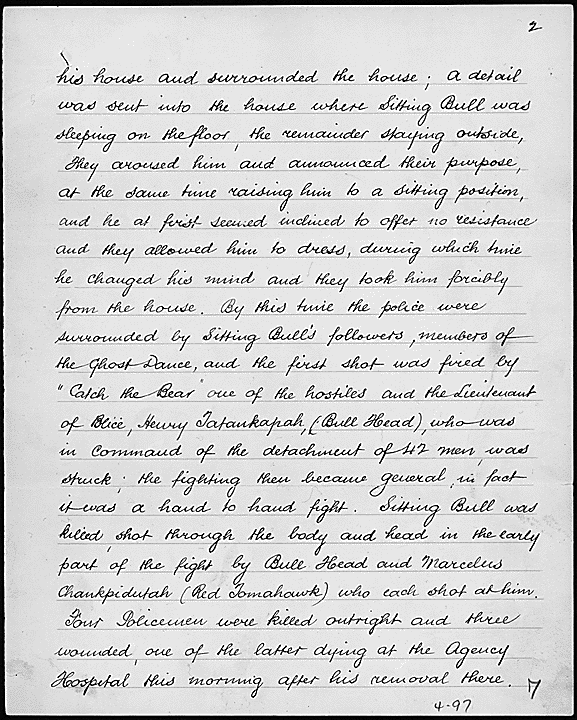 2
his house and surrounded the house; A detail
was sent into the house where Sitting Bull was
sleeping on the floor, the remainder staying outside,
They aroused him and announced their purpose,
at the same time raising him to a sitting position,
and he at first seemed inclined to offer no resistance
and they allowed him to dress, during which time
he changed his mind and they took him forcibly
from the house. By this time the police were
surrounded by Sitting Bull's followers, members of
the Ghost Dance, and the first shot was fired by
"Catch the Bear" one of the hostiles and the Lieutenant
of Police, Henry Tatankapah, (Bull Head), who was
in command of the detachment of 42 men, was
struck; the fighting then became general, in fact
it was a hand to hand fight. Sitting Bull was
killed, shot through the body and head in the early
part of the fight by Bull Head and Marcelus
Chankpidutah (Red Tomahawk) who each shot at him.
Four Policemen were killed outright and three
wounded, one of the latter dying at the Agency
Hospital this morning after his removal there.
7
4-97